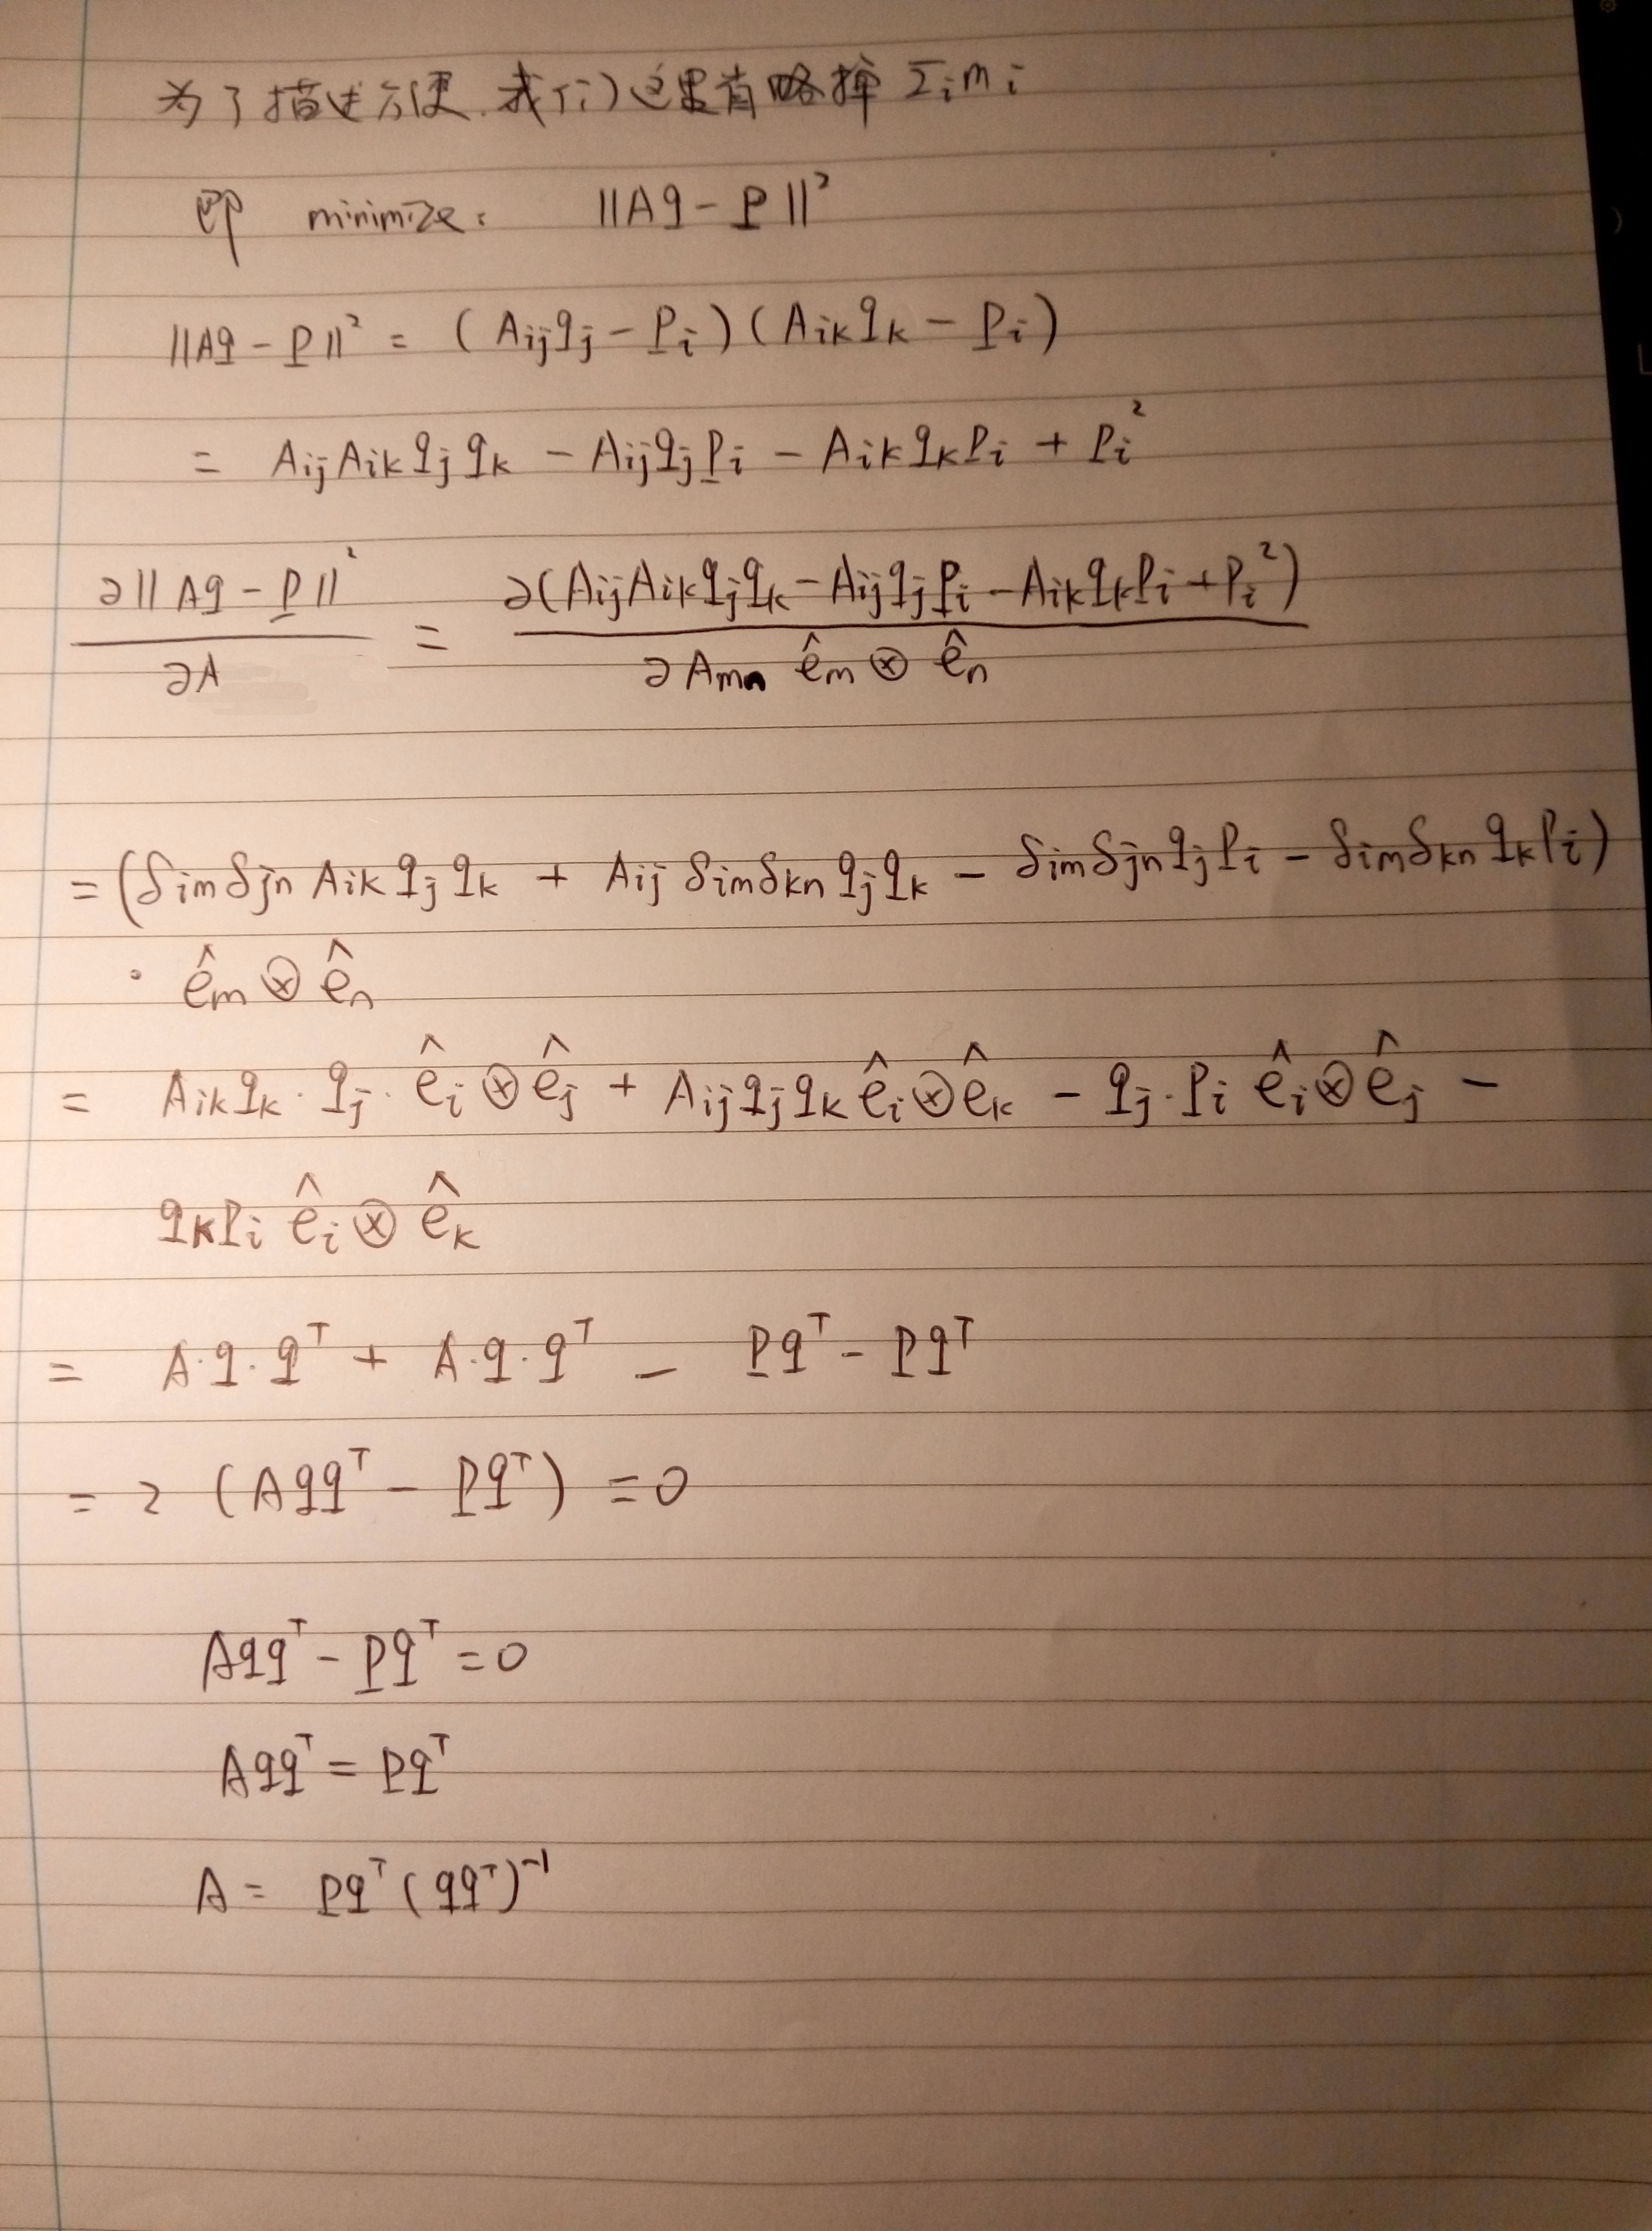 为了描述方便，我们这里省略掉 Σᵢmᵢ
即 minimize: ||Aq - p||²
||Aq - p||² = (Aᵢⱼqⱼ - pᵢ)(Aᵢₖqₖ - pᵢ)
= AᵢⱼAᵢₖqⱼqₖ - Aᵢⱼqⱼpᵢ - Aᵢₖqₖpᵢ + pᵢ²
∂||Aq - p||² / ∂A = ∂(AᵢⱼAᵢₖqⱼqₖ - Aᵢⱼqⱼpᵢ - Aᵢₖqₖpᵢ + pᵢ²) / ∂Aₘₙ êₘ⊗êₙ
= (δᵢₘδⱼₙAᵢₖqⱼqₖ + Aᵢⱼδᵢₘδₖₙqⱼqₖ - δᵢₘδⱼₙqⱼpᵢ - δᵢₘδₖₙqₖpᵢ)
· êₘ⊗êₙ
= Aᵢₖqₖ·qⱼ·êᵢ⊗êⱼ + Aᵢⱼqⱼqₖêᵢ⊗êₖ - qⱼ·pᵢ êᵢ⊗êⱼ -
qₖpᵢ êᵢ⊗êₖ
= A·q·qᵀ + A·q·qᵀ - pqᵀ - pqᵀ
= 2 (Aqqᵀ - pqᵀ) = 0
Aqqᵀ - pqᵀ = 0
Aqqᵀ = pqᵀ
A = pqᵀ(qqᵀ)⁻¹